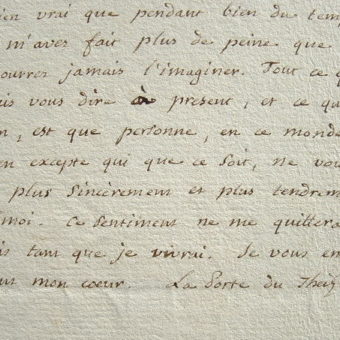 ien vrai que pendant bien du temp
m'avez fait plus de peine que
ourrez jamais l'imaginer. Tout ce q
is vous dire à present, et ce qu
n, est que personne, en ce monde
en excepte qui que ce soit, ne vou
plus sincèrement et plus tendrem
moi. Ce sentiment ne me quittera
is tant que je vivrai. Je vous em
mon coeur. La Porte du Theil